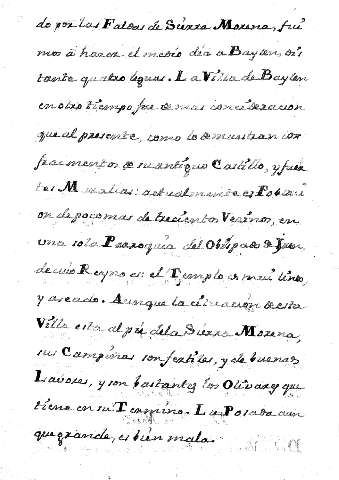 do por las Faldas de Sierra Morena, fui
mos à hacer el medio dia a Baylen, dis
tante quatro leguas. La Villa de Baylen
en otro tiempo fue de mas concideracion
que al presente, como lo demuestran los
fracmentos de su antiguo Castillo, y fuer
tes Murallas: actualmente es Poblaci
on de poco mas de trecientos Vecinos, en
una sola Parroquia del Obispado de Jaen
de cuio Reyno es: el Templo es mui lindo,
y aseado. Aunque la cituación de esta
Villa esta al pie de la Sierra Morena,
sus Campiñas son fertiles, y de buenas
Lavores, y son bastantes los Olivares que
tiene en su Termino. La Posada aun
que grande, es bien mala.